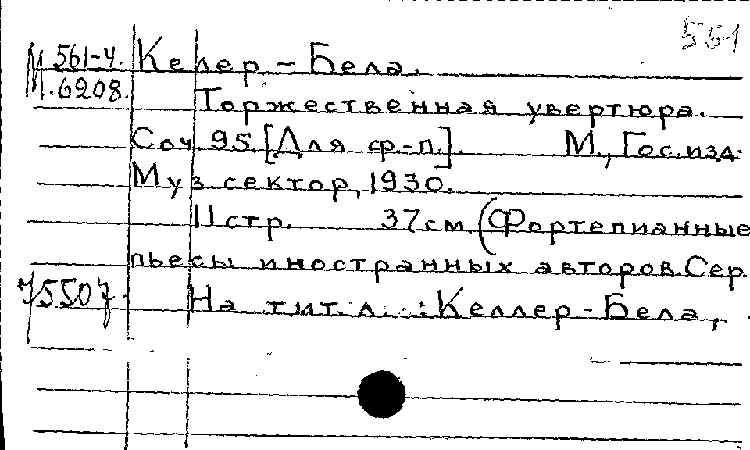 551
М 561-4. Келер-Бела.
М.6208. Торжественная увертюра.
Соч 95 [Для ф-п.]. М., Гос. изд.
Муз сектор, 1930.
11 стр. 37 см (Фортепианные
пьесы иностранных авторов. Сер.
75507 На тит. л. : Келлер-Бела,